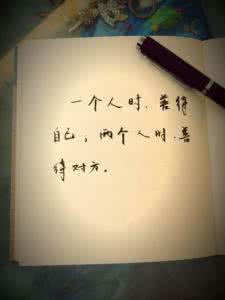 一个人时、善待
自己，两个人时、善
待对方。